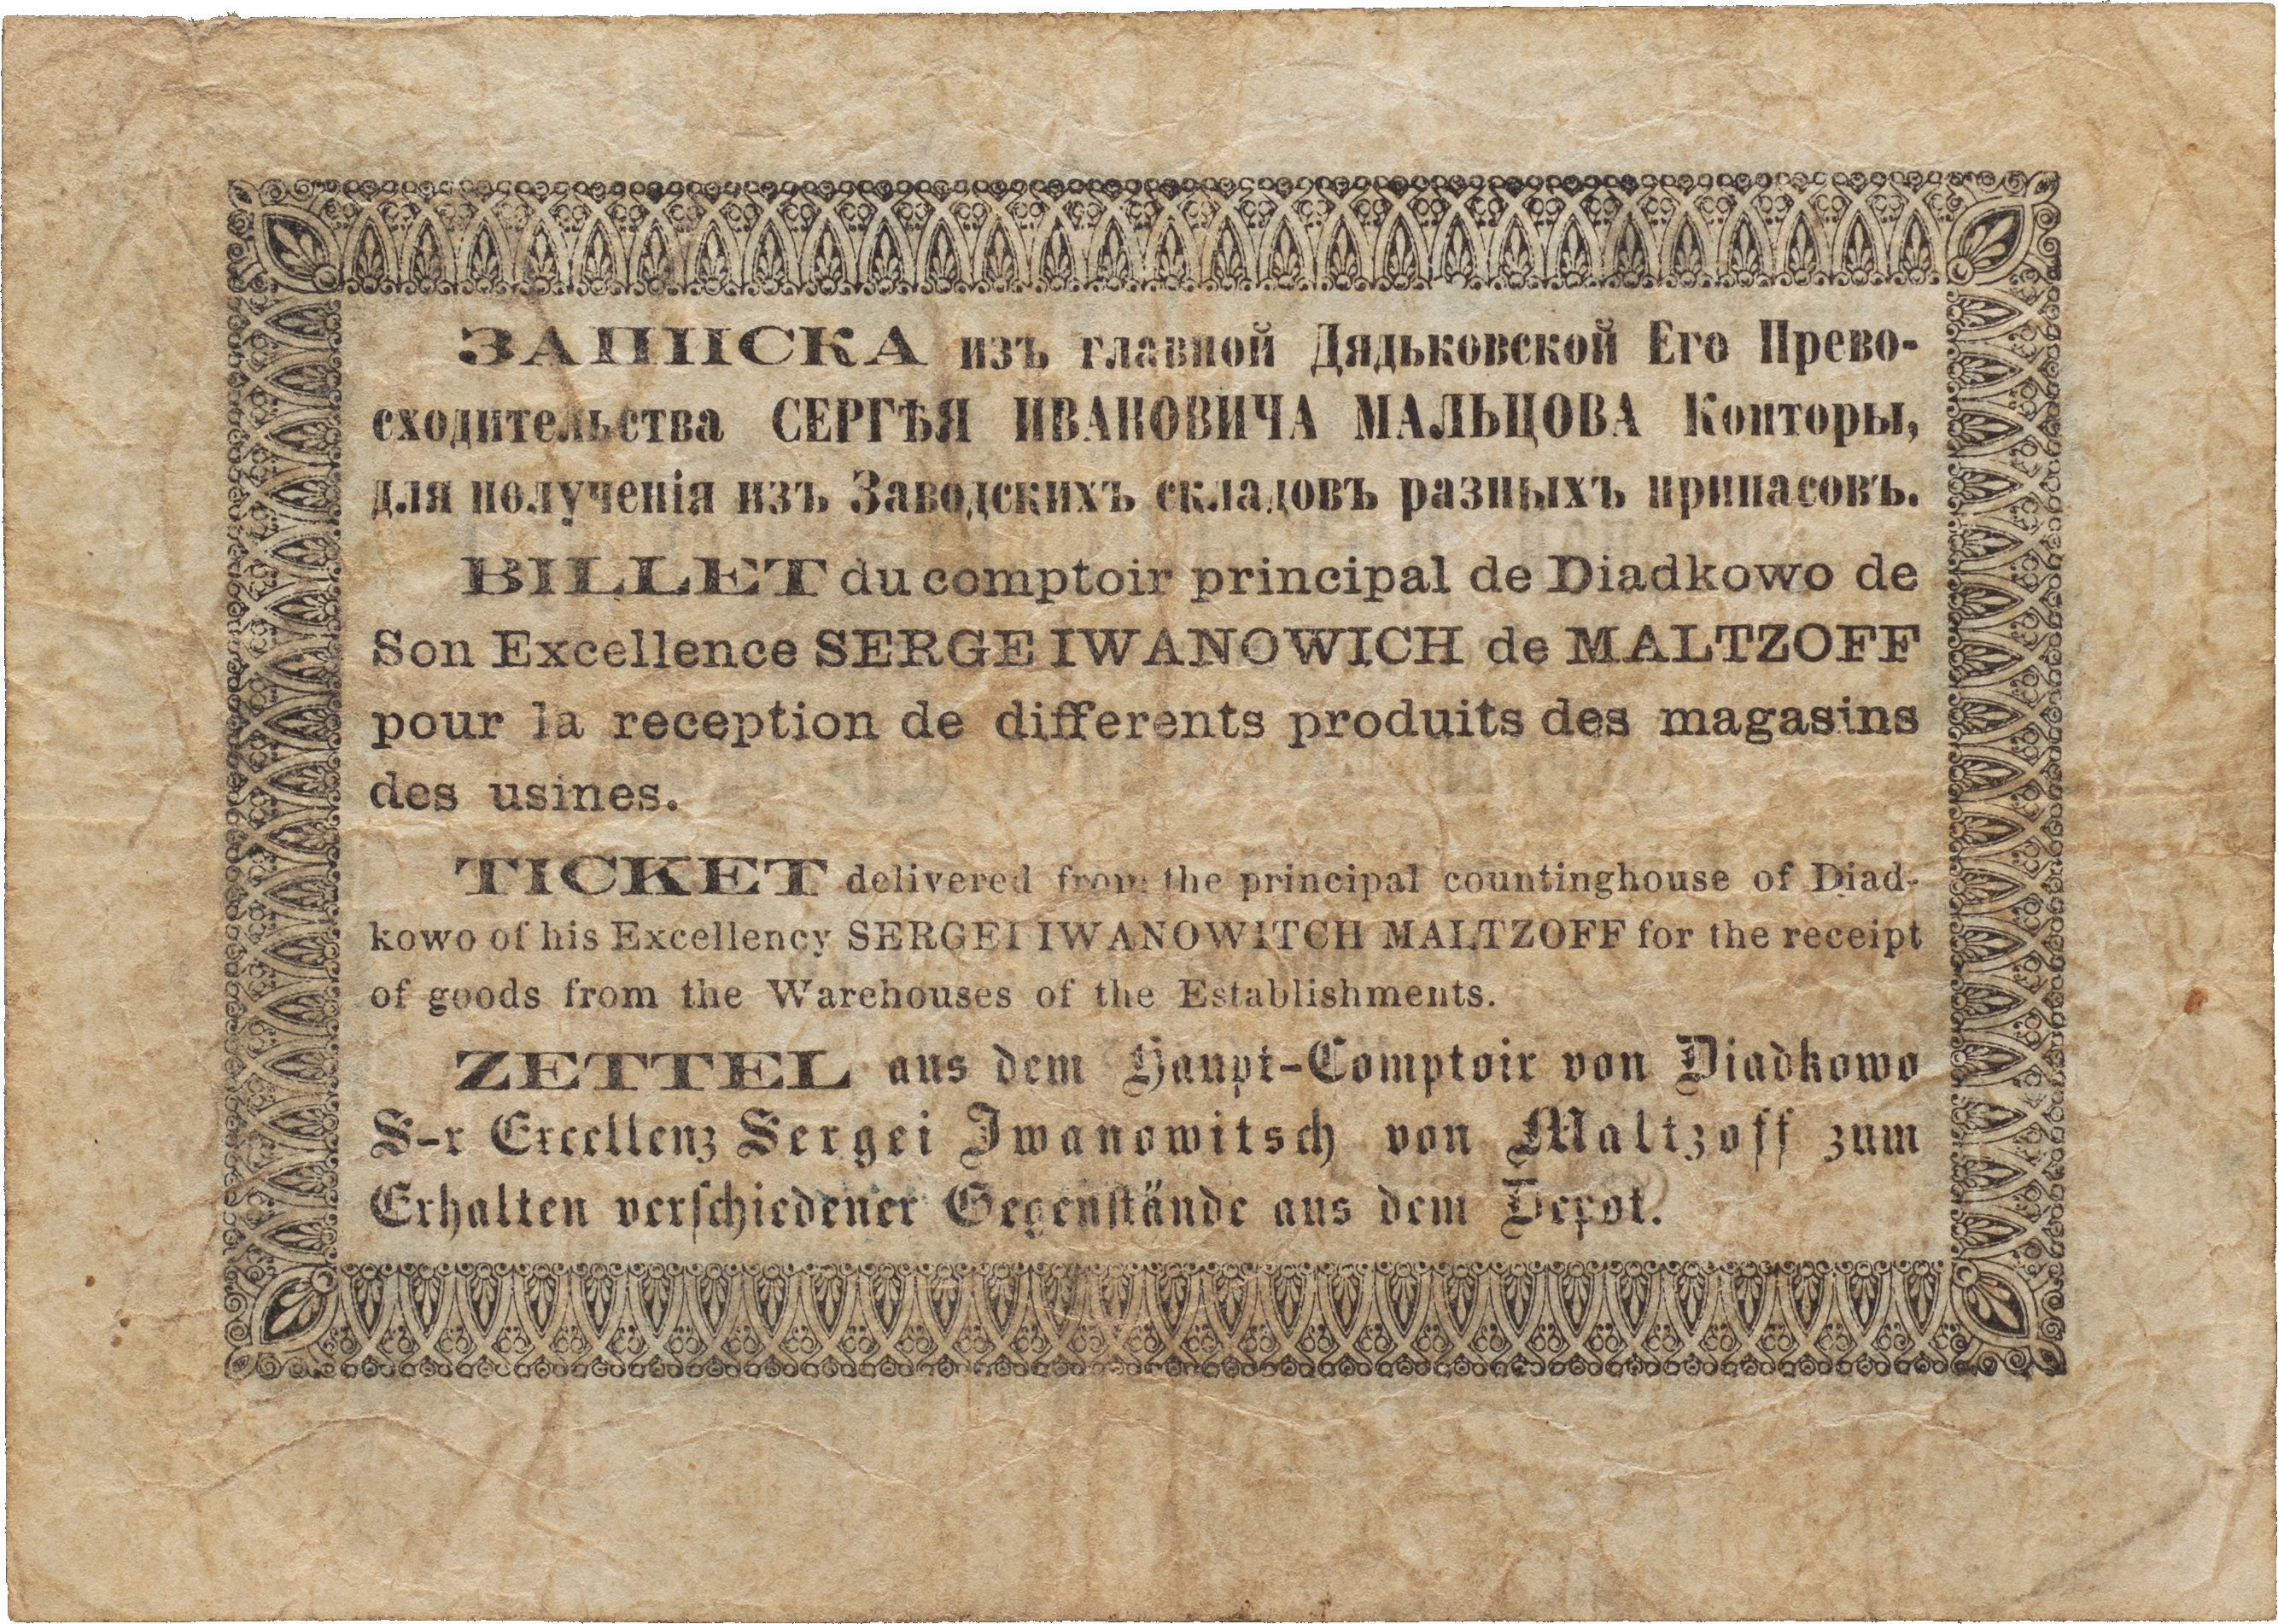 ЗАПИСКА изъ главной Дядьковской Его Прево-
сходительства СЕРГѢЯ ИВАНОВИЧА МАЛЬЦОВА Конторы,
для полученія изъ Заводскихъ складовъ разныхъ припасовъ.
BILLET du comptoir principal de Diadkowo de
Son Excellence SERGE IWANOWICH de MALTZOFF
pour la reception de differents produits des magasins
des usines.
TICKET delivered from the principal countinghouse of Diad-
kowo of his Excellency SERGEI IWANOWITCH MALTZOFF for the receipt
of goods from the Warehouses of the Establishments.
ZETTEL aus dem Haupt-Comptoir von Diadkowo
S-r Excellenz Sergei Iwanowitsch von Maltzoff zum
Erhalten verschiedener Gegenstände aus dem Depot.